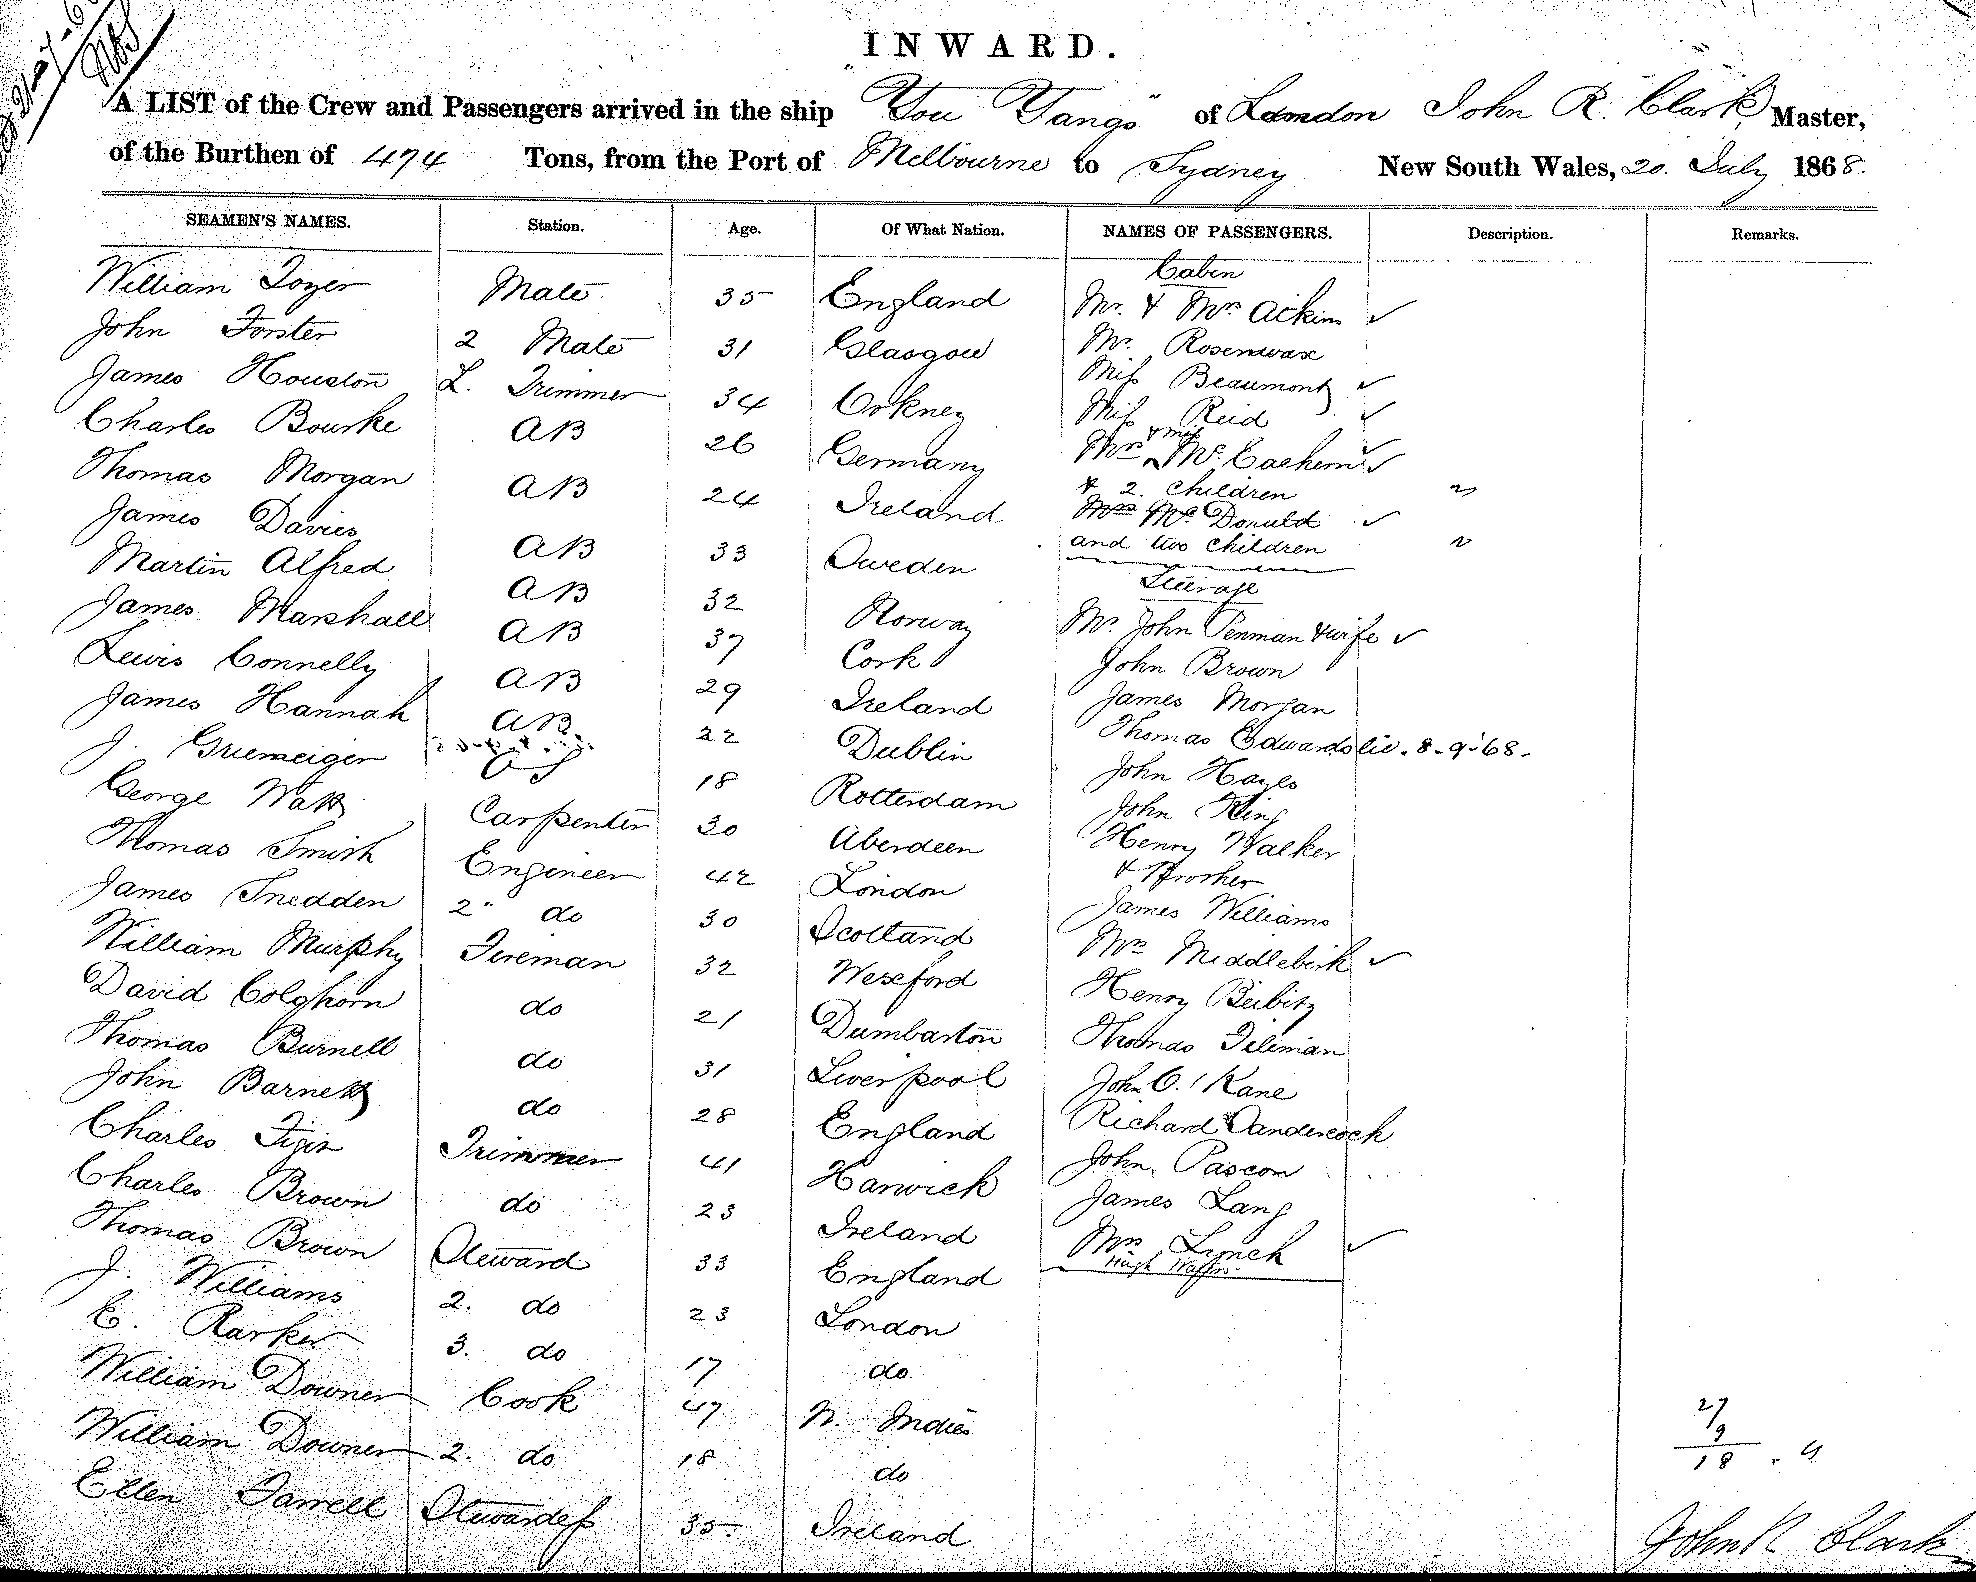 INWARD.
A LIST of the Crew and Passengers arrived in the ship "You Yangs" of London John R. Clark, Master,
of the Burthen of 474 Tons, from the Port of Melbourne to Sydney New South Wales, 20 July 1868.
SEAMEN'S NAMES. Station. Age. Of What Nation. NAMES OF PASSENGERS. Description. Remarks.
William Tozer Mate 35 England
John Forster 2 Mate 31 Glasgow
James Houston L. Trimmer 34 Orkney
Charles Bourke AB 26 Germany
Thomas Morgan AB 24 Ireland
James Davies AB 33 Sweden
Martin Alfred AB 32 Norway
James Marshall AB 37 Cork
Lewis Connelly AB 29 Ireland
James Hannah AB 22 Dublin
J. Griemeiger OS 18 Rotterdam
George Watt Carpenter 30 Aberdeen
Thomas Smith Engineer 42 London
James Snedden 2" do 30 Scotland
William Murphy Fireman 32 Wexford
David Colghorn do 21 Dumbarton
Thomas Burnell do 31 Liverpool
John Barnett do 28 England
Charles Trimmer 41 Harwich
Charles Brown do 23 Ireland
Thomas Brown Steward 33 England
J. Williams 2. do 23 London
E. Rarker 3. do 17 do
William Downer Cook 47 W. Indies
William Downer 2. do 18 do
Ellen Farrell Stewardess 35 Ireland
Cabin
Mr. & Mrs Aikin ✓
Mr. Rosenwax
Miss Beaumont ✓
Miss Reid ✓
& Miss
Mrs McEachern ✓✓
& 2. Children
Mrs McDonald ✓
and two children
Steerage
Mr. John Penman & wife ✓
John Brown
James Morgan
Thomas Edwards lic. 8-9-68-
John Hayes
John King
Henry Walker
& Brother
James Williams
Mrs Middlebirk ✓
Henry Beibitz
Thomas Tileman
John O'Kane
Richard Vandercock
John Pascon
James Lang
Mrs Lynch ✓
Hugh
27
9
18
John R Clark